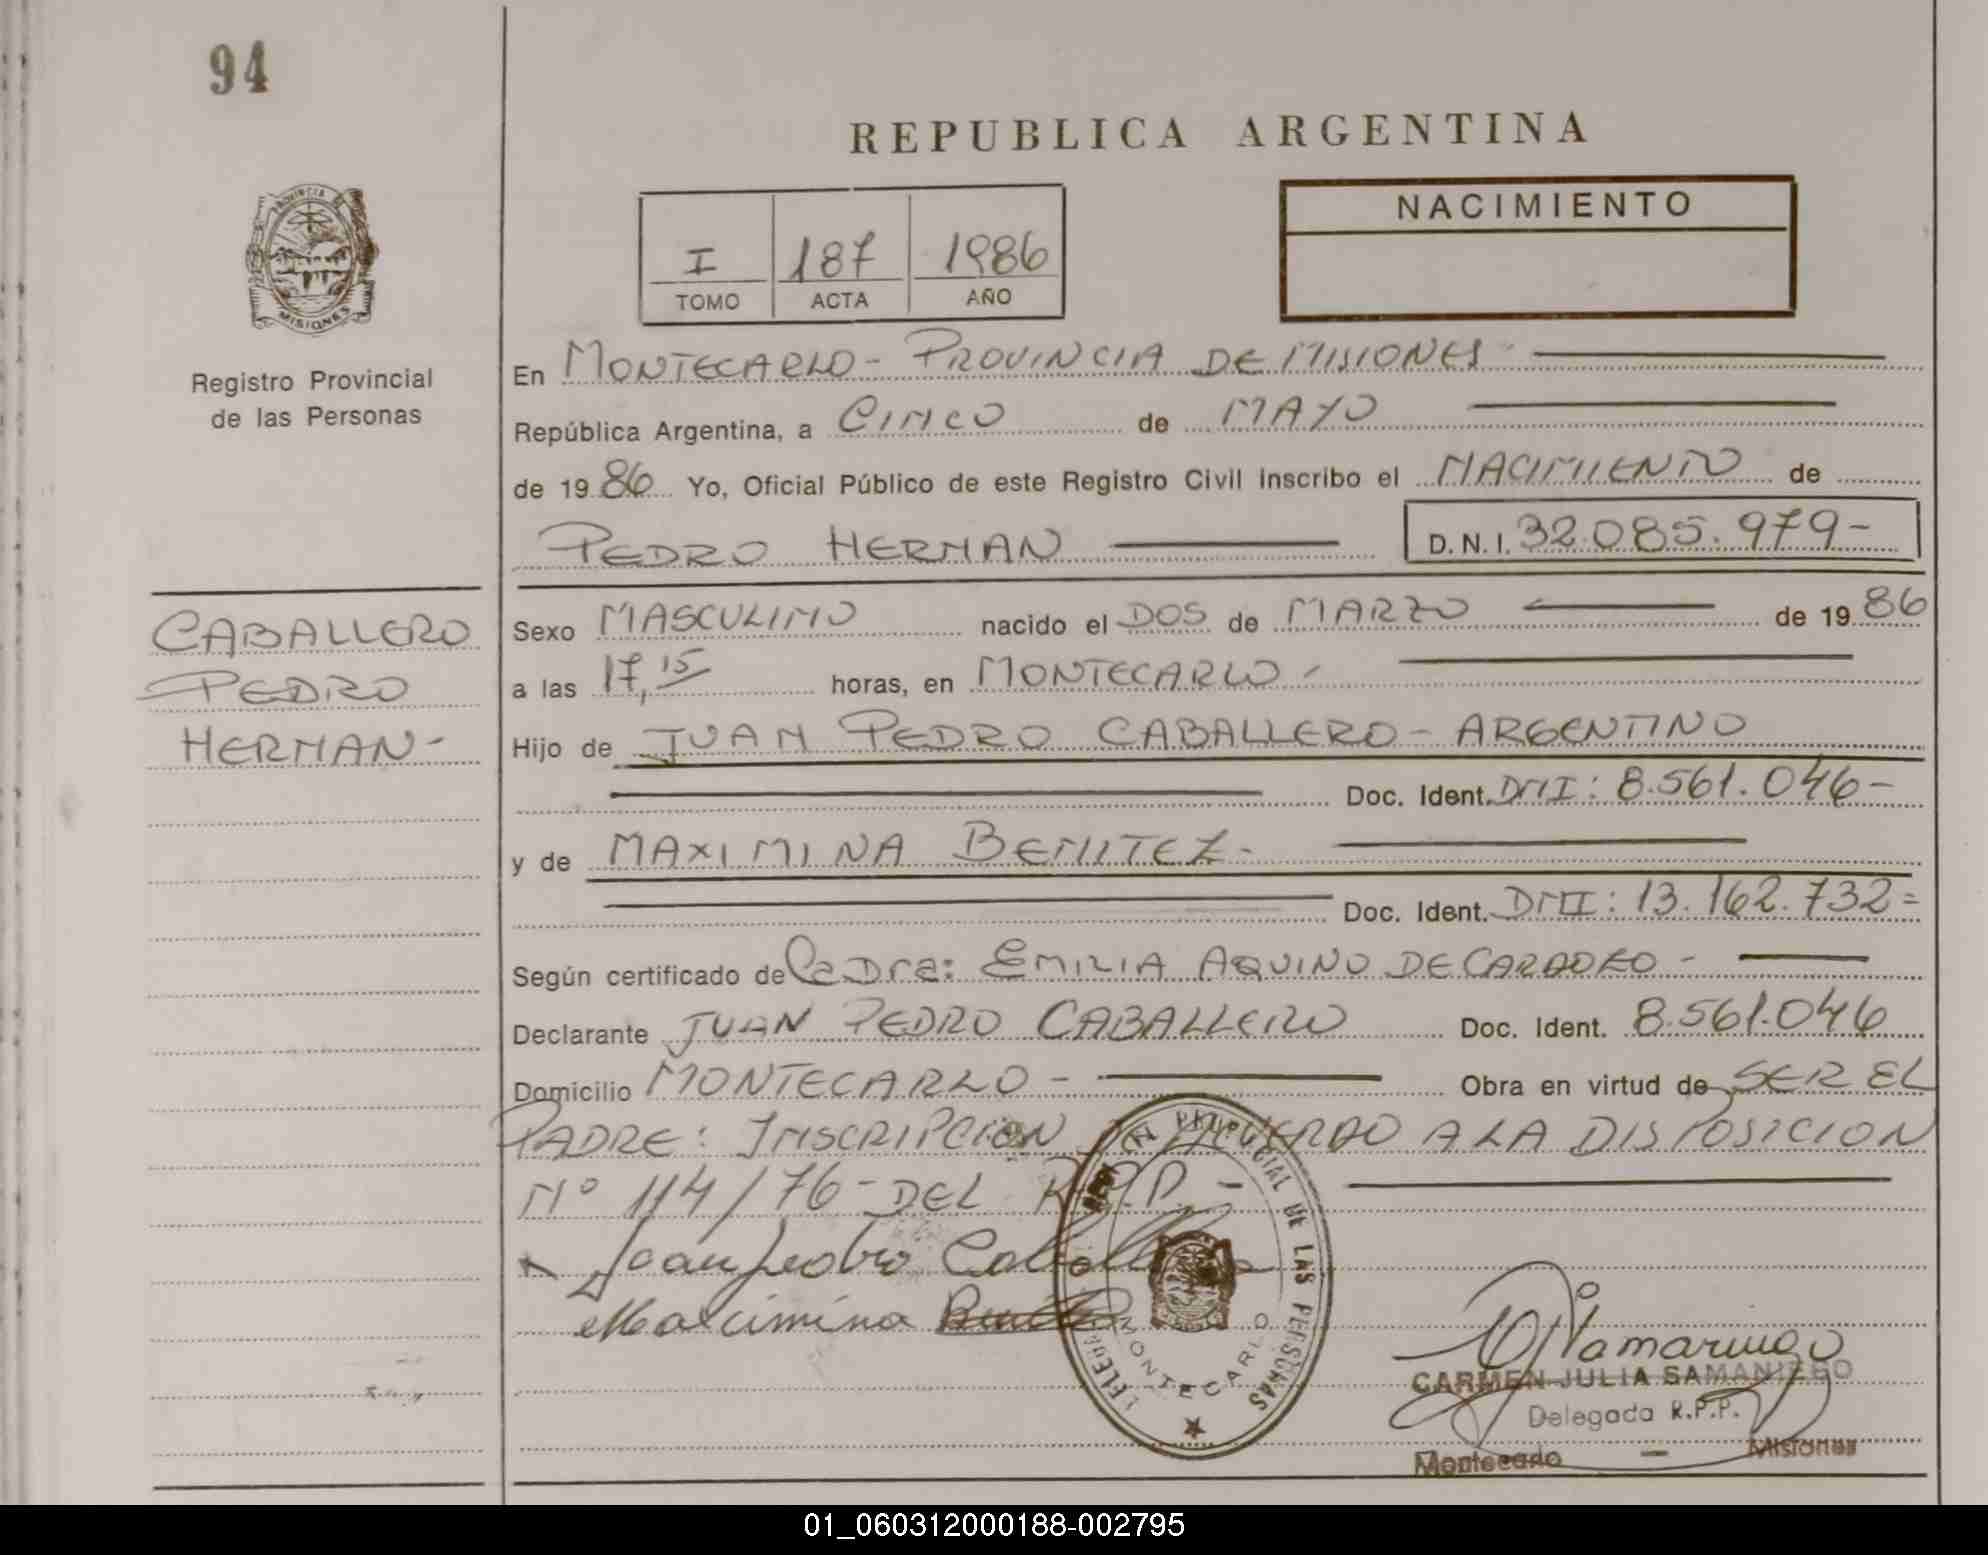 94
REPUBLICA ARGENTINA
PROVINCIA DE
MISIONES
Registro Provincial
de las Personas
I 187 1986
TOMO ACTA AÑO
NACIMIENTO
En MONTECARLO - PROVINCIA DE MISIONES
República Argentina, a CINCO de MAYO
de 1986 Yo, Oficial Público de este Registro Civil Inscribo el NACIMIENTO de
PEDRO HERNAN D.N.I. 32.085.979-
CABALLERO
PEDRO
HERNAN-
Sexo MASCULINO nacido el DOS de MARZO de 1986
a las 17,15 horas, en MONTECARLO -
Hijo de JUAN PEDRO CABALLERO - ARGENTINO
Doc. Ident. DNI: 8.561.046-
y de MAXIMINA BENITEZ -
Doc. Ident. DNI: 13.162.732=
Según certificado de La Dra: EMILIA AQUINO DE CARDOZO -
Declarante JUAN PEDRO CABALLERO Doc. Ident. 8.561.046
Domicilio MONTECARLO - Obra en virtud de SER EL
PADRE: INSCRIPCION DE ACUERDO A LA DISPOSICION
Nº 114/76 - DEL R.P.P. -
Juan Pedro Caballero
Maxcimina
PROVINCIAL DE LAS PERSONAS
MONTECARLO
CARMEN JULIA SAMANIEGO
Delegada R.P.P.
Montecarlo - Misiones
01_060312000188-002795